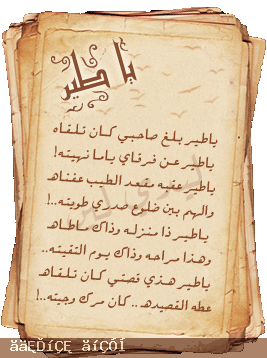 يا طير
ياطير بلغ صاحبي كان تلقاه
ياطير عن فرقاي ياما نهيته!
ياطير عقبه مقعد الطيب عفناه
والهم بين ضلوع صدري طويته..!
ياطير ذا منزله وذاك ملطاه
وهذا مراحه وذاك يوم التقيته..
ياطير هذي قصتي كان تلقاه
عطه القصيده.. كان مرك وجيته..!